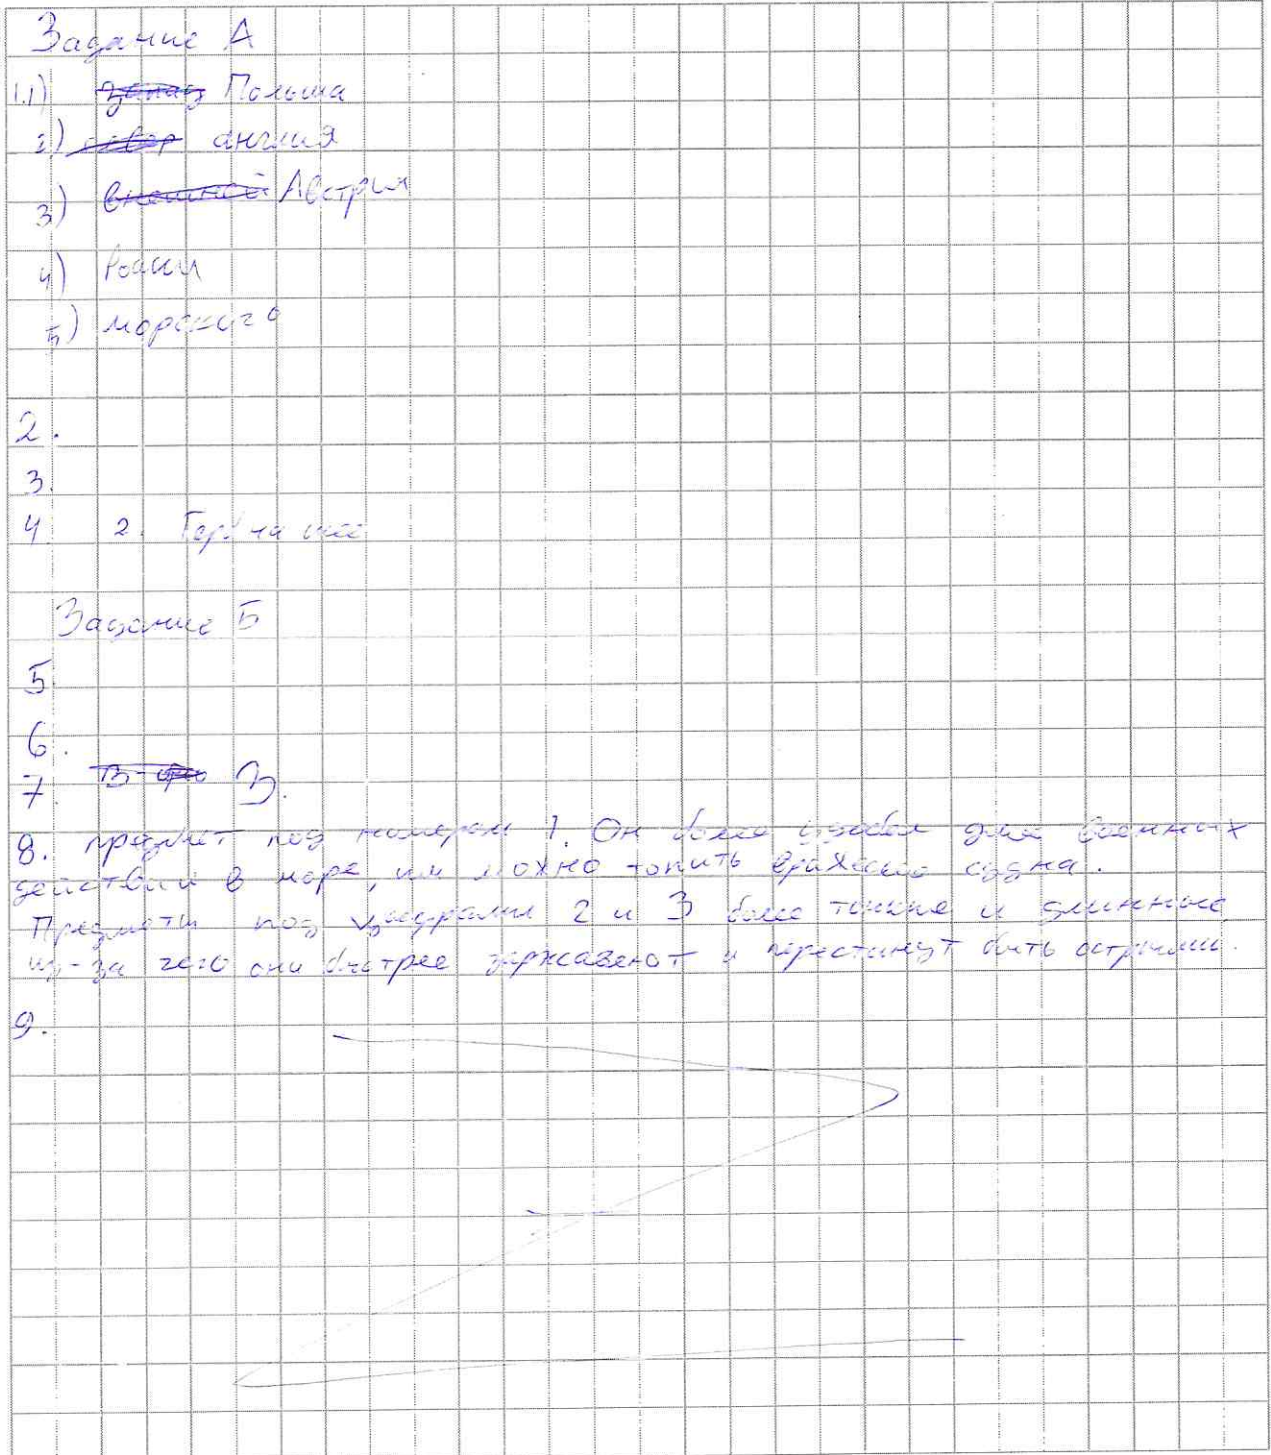 Задание А
1.1) Польша
2) англия
3) Австрия
4)
5) морского
2.
3.
4. 2. Герб на
Задание Б
5.
6.
7. 3.
8. предмет под номером 1. Он более удобен для военных
действий в море, им можно топить вражеские судна.
Предметы под цифрами 2 и 3 более тонкие и длинные
из-за чего они быстрее заржавеют и перестанут быть острыми.
9.